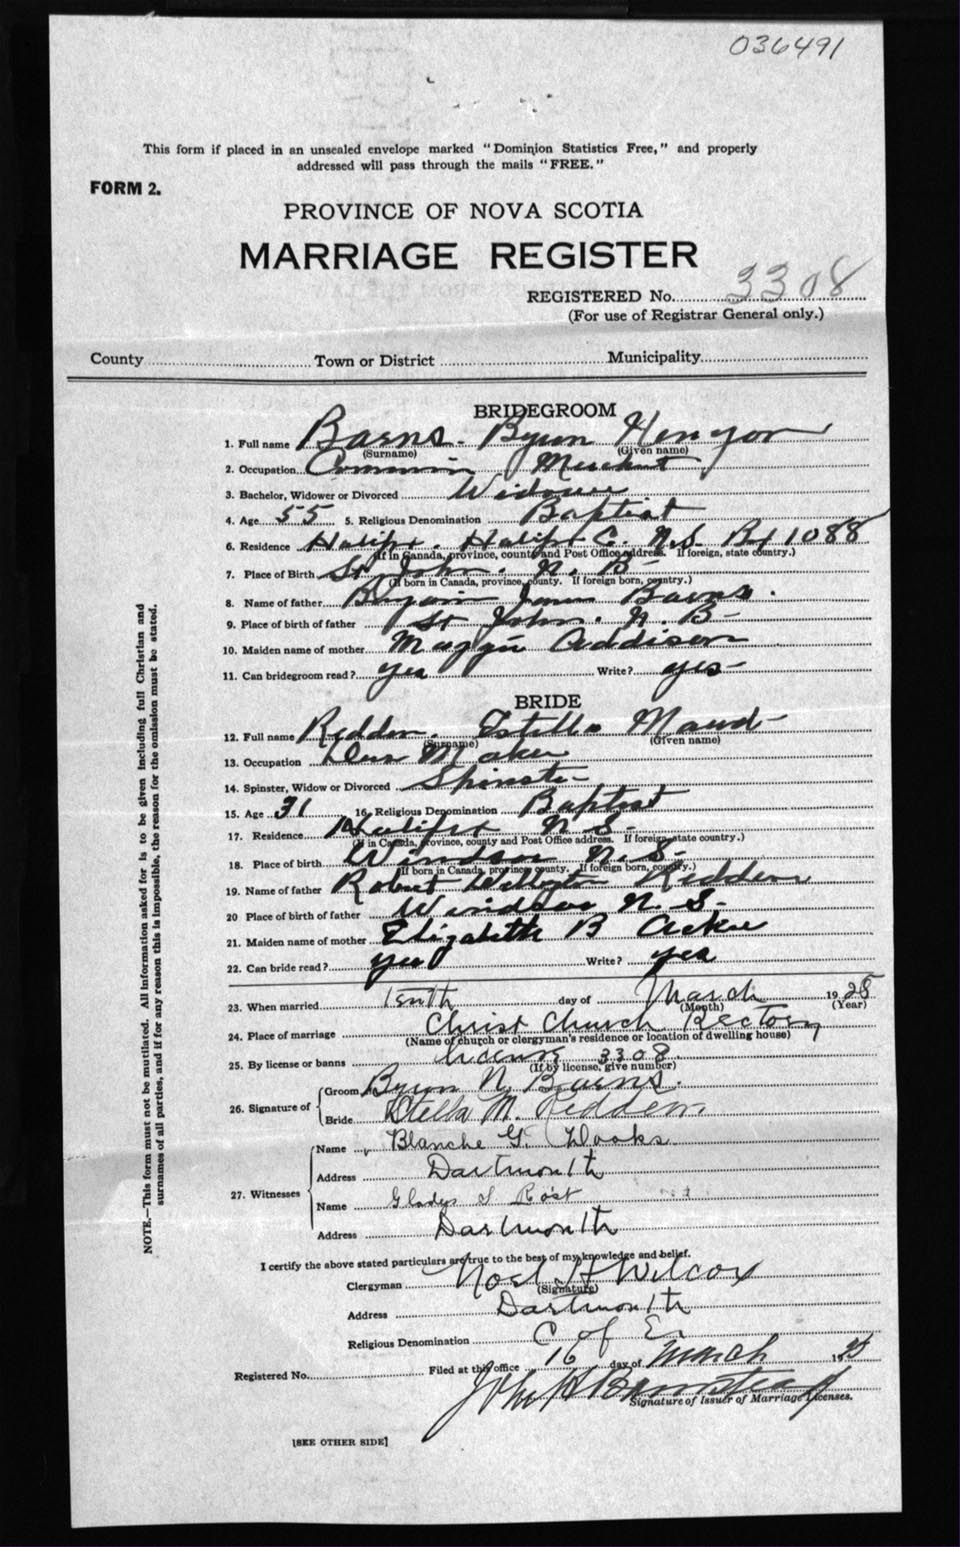 036491
This form if placed in an unsealed envelope marked "Dominion Statistics Free," and properly
addressed will pass through the mails "FREE."
FORM 2.
PROVINCE OF NOVA SCOTIA
MARRIAGE REGISTER
REGISTERED No. 3308
(For use of Registrar General only.)
County Town or District Municipality
BRIDEGROOM
1. Full name Barns. Byron
(Surname) (Given name)
2. Occupation Merchant
3. Bachelor, Widower or Divorced Widower
4. Age 55 5. Religious Denomination Baptist
6. Residence Halifax. Halifax C. N.S. Bx 1088
(If in Canada, province, county and Post Office address. If foreign, state country.)
7. Place of Birth St John. N. B
(If born in Canada, province, county. If foreign born, country.)
8. Name of father James Barns.
9. Place of birth of father St John. N. B
10. Maiden name of mother Maggie Addison
11. Can bridegroom read? yes Write? yes
BRIDE
12. Full name Redden. Estella Maud
(Surname) (Given name)
13. Occupation Maker
14. Spinster, Widow or Divorced Spinster
15. Age 31 16. Religious Denomination Baptist
17. Residence Halifax N. S.
(If in Canada, province, county and Post Office address. If foreign, state country.)
18. Place of birth Windsor N. S.
(If born in Canada, province, county. If foreign born, country.)
19. Name of father Robert Wellington Redden
20 Place of birth of father Windsor N. S.
21. Maiden name of mother Elizabeth B
22. Can bride read? yes Write? yes
23. When married tenth day of March 1928
(Month) (Year)
24. Place of marriage Christ Church Rectory
(Name of church or clergyman's residence or location of dwelling house)
25. By license or banns license 3308
(If by license, give number)
26. Signature of Groom Byron N. Barns.
Bride Stella M. Redden
27. Witnesses Name Blanche G.
Address Dartmouth
Name Gladys Rost
Address Dartmouth
I certify the above stated particulars are true to the best of my knowledge and belief.
Clergyman Noel H Wilcox
(Signature)
Address Dartmouth
Religious Denomination C of E.
Registered No. Filed at this office 16 day of March 19
John
Signature of Issuer of Marriage Licenses.
[SEE OTHER SIDE]
NOTE.—This form must not be mutilated. All information asked for is to be given including full Christian and
surnames of all parties, and if for any reason this is impossible, the reason for the omission must be stated.